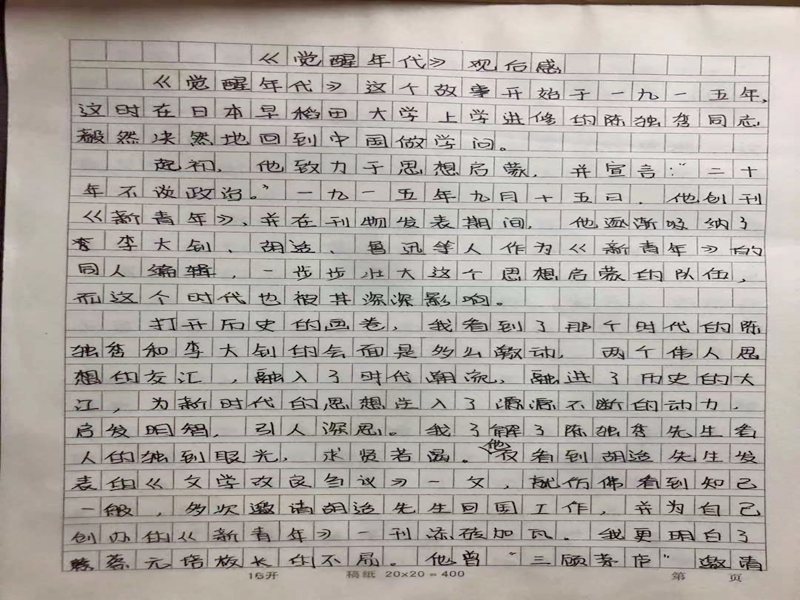 《觉醒年代》观后感
《觉醒年代》这个故事开始于一九一五年,
这时在日本早稻田大学上学进修的陈独秀同志
毅然决然地回到中国做学问。
起初,他致力于思想启蒙,并宣言:“二十
年不谈政治。”一九一五年九月十五日,他创刊
《新青年》,并在刊物发表期间,他逐渐吸纳了
李大钊、胡适、鲁迅等人作为《新青年》的
同人编辑,一步步壮大这个思想启蒙的队伍,
而这个时代也被其深深影响。
打开历史的画卷,我看到了那个时代的陈
独秀和李大钊的会面是多么激动,两个伟人思
想的交汇,融入了时代潮流,融进了历史的大
江,为新时代的思想注入了源源不断的动力,
启发明智,引人深思。我了解了陈独秀先生看
人的独到眼光,求贤若渴。他仅看到胡适先生发
表的《文学改良刍议》一文,就仿佛看到知己
一般,多次邀请胡适先生回国工作,并为自己
创办的《新青年》一刊添砖加瓦。我更明白了
蔡元培校长的不易。他曾“三顾茅庐”邀请
16开 稿纸 20×20=400 第 页